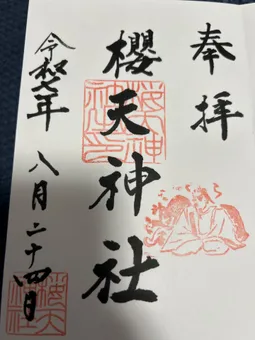 奉拝
櫻天神社
令和六年 八月二十四日